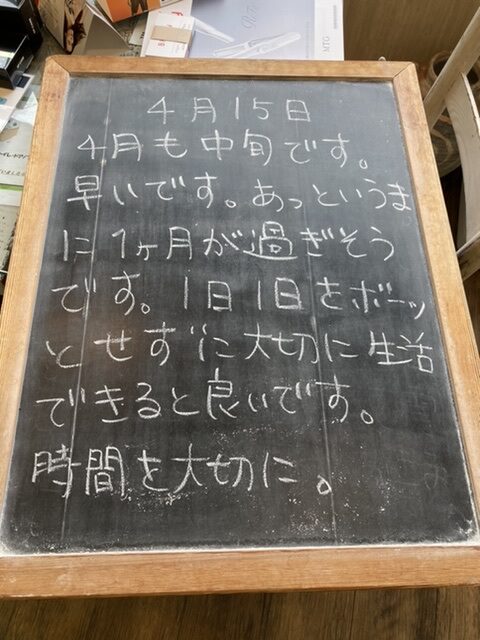 MTG
4月15日
4月も中旬です。
早いです。あっというま
に1ヶ月が過ぎそう
です。1日1日をボーッ
とせずに大切に生活
できると良いです。
時間を大切に。